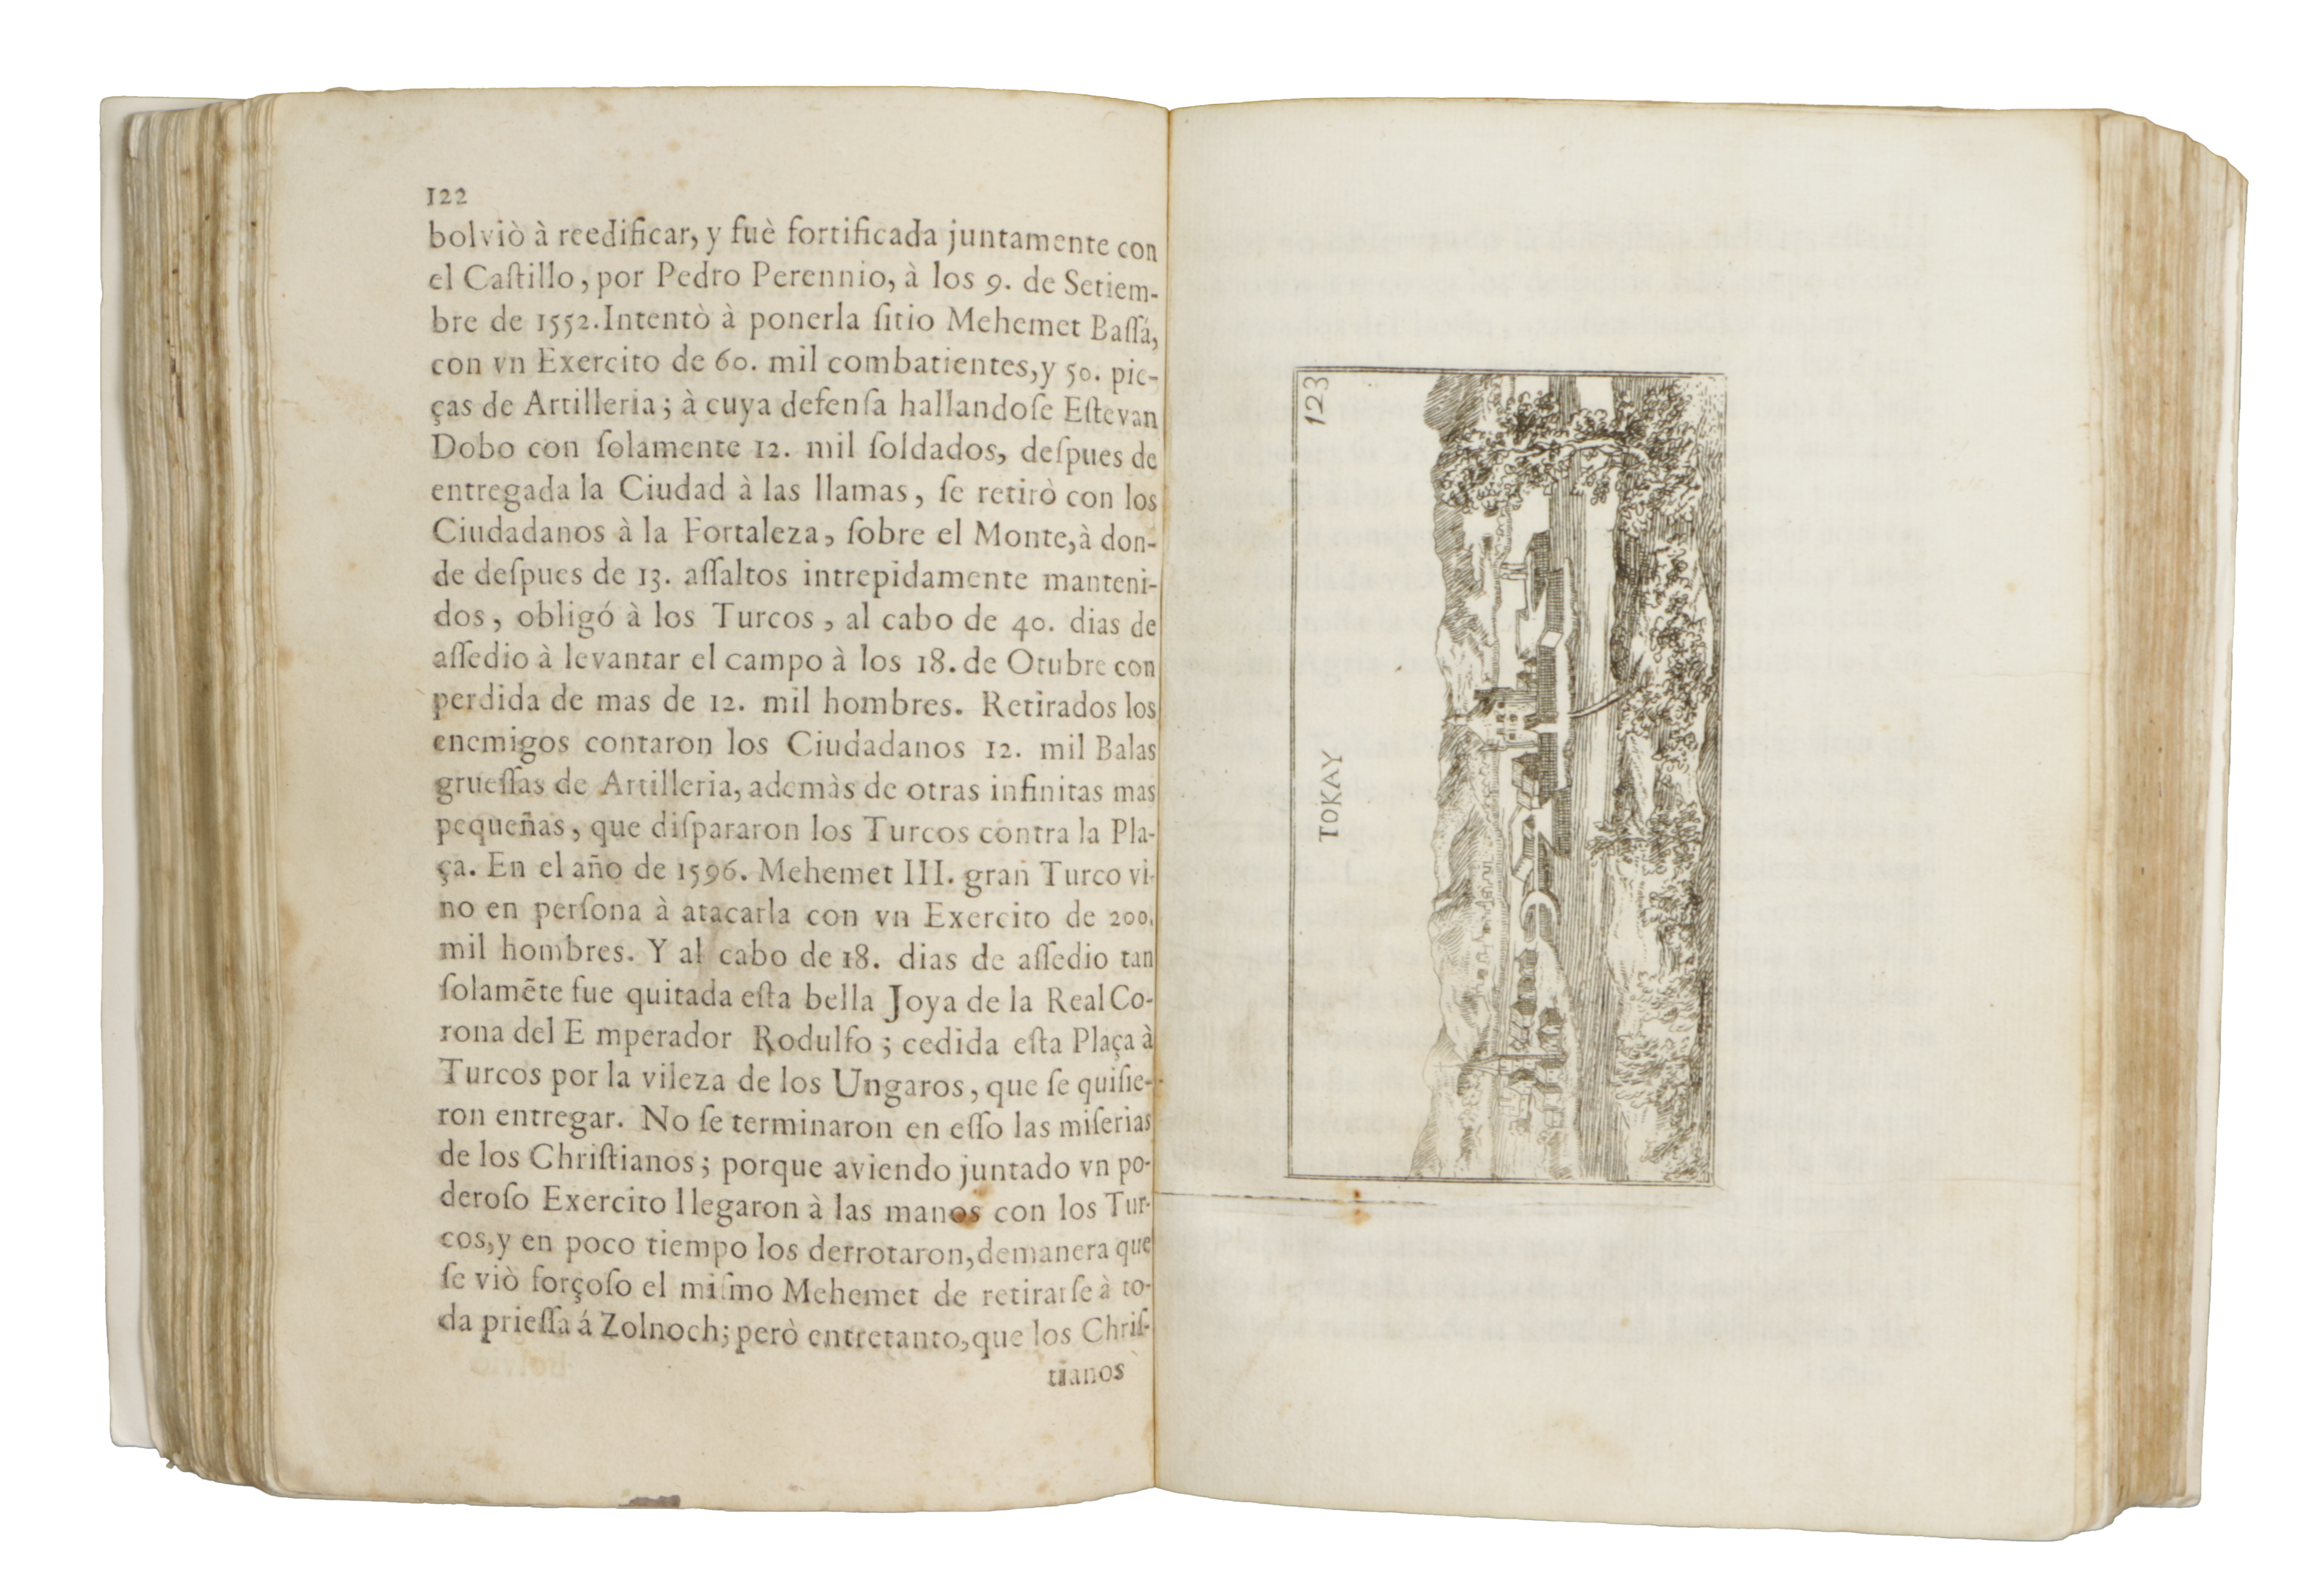 122
bolviò à reedificar, y fuè fortificada juntamente con
el Caſtillo, por Pedro Perennio, à los 9. de Setiem-
bre de 1552. Intentò à ponerla ſitio Mehemet Baſſá,
con vn Exercito de 60. mil combatientes, y 50. pie-
ças de Artilleria; à cuya defenſa hallandoſe Eſtevan
Dobo con ſolamente 12. mil ſoldados, deſpues de
entregada la Ciudad à las llamas, ſe retirò con los
Ciudadanos à la Fortaleza, ſobre el Monte, à don-
de deſpues de 13. aſſaltos intrepidamente manteni-
dos, obligó à los Turcos, al cabo de 40. dias de
aſſedio à levantar el campo à los 18. de Otubre con
perdida de mas de 12. mil hombres. Retirados los
enemigos contaron los Ciudadanos 12. mil Balas
grueſſas de Artilleria, ademàs de otras infinitas mas
pequeñas, que diſpararon los Turcos contra la Pla-
ça. En el año de 1596. Mehemet III. gran Turco vi-
no en perſona à atacarla con vn Exercito de 200.
mil hombres. Y al cabo de 18. dias de aſſedio tan
ſolamẽte fue quitada eſta bella Joya de la Real Co-
rona del E mperador Rodulfo; cedida eſta Plaça à
Turcos por la vileza de los Ungaros, que ſe quiſie-
ron entregar. No ſe terminaron en eſſo las miſerias
de los Chriſtianos; porque aviendo juntado vn po-
deroſo Exercito llegaron à las manos con los Tur-
cos, y en poco tiempo los derrotaron, demanera que
ſe viò forçoſo el miſmo Mehemet de retirarſe à to-
da prieſſa á Zolnoch; però entretanto, que los Chriſ-
tianos
123
TOKAY